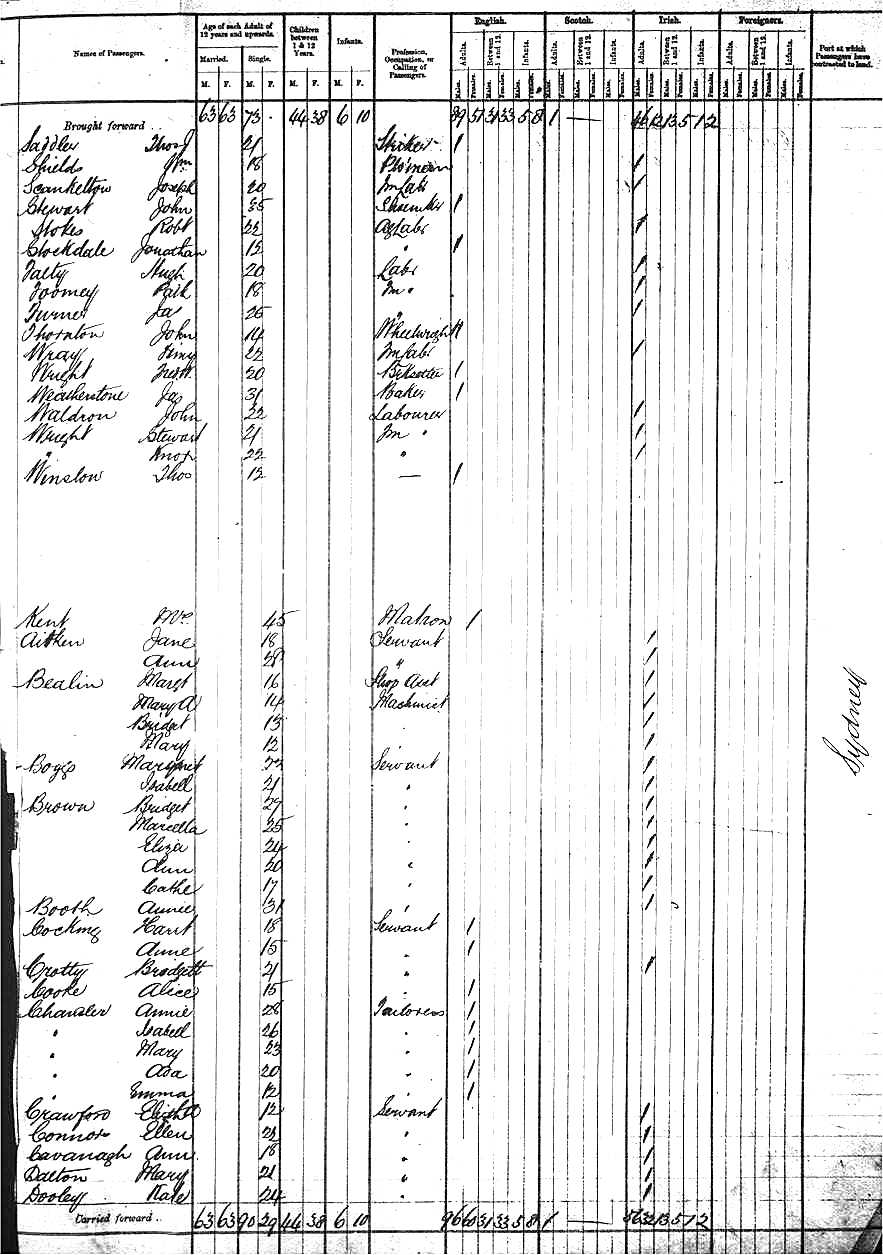 Names of Passengers.
Age of each Adult of 12 years and upwards.
Married. Single.
M. F. M. F.
Children between 1 & 12 Years.
M. F.
Infants.
M. F.
Profession, Occupation, or Calling of Passengers.
English. Scotch. Irish. Foreigners.
Adults. Between 1 and 12. Infants.
Males. Females.
Port at which Passengers have contracted to land.
Brought forward 63 63 73 44 38 6 10 89 51 31 33 5 8 1 — 46 12 13 5 1 2
Saddler Thos 21 1
Shields Wm 18 1
Joseph 20 Fm Labr 1
Stewart John 35 1
Stokes Robt 22 Ag Labr 1
Stockdale Jonathan 12 " 1
Talty Hugh 20 Labr 1
Toomey Patk 18 Fm " 1
Turner Jas 25 " 1
Thornton John 14 Wheelwright 1
Wray 22 Fm Labr 1
Wright Fredk 20 1
Weatherstone Jas 31 Baker 1
Waldron John 22 Labourer 1
Wright Stewart 21 Fm " 1
" Knox 22 " 1
Winslow Thos 12 — 1
Kent Mrs 45 Matron 1
Aitken Jane 18 Servant 1
Ann 28 " 1
Bealin Margt 16 Shop Asst 1
Mary A 14 Machinist 1
Bridget 13 1
Mary 12 1
Boggs Margaret 22 Servant 1
Isabell 21 " 1
Brown Bridget 29 " 1
Marcella 25 " 1
Eliza 24 " 1
Ann 20 " 1
Cathe 17 " 1
Booth Annie 31 " 1
Cocking Harit 18 Servant 1
Anne 15 " 1
Crotty Bridgett 21 " 1
Cooke Alice 15 " 1
Chansler Annie 28 Tailoress 1
" Isabell 26 " 1
" Mary 23 " 1
" Ada 20 " 1
" Emma 12 " 1
Crawford Elizbth 12 Servant 1
Connors Ellen 22 " 1
Cavanagh Ann 18 " 1
Dalton Mary 21 " 1
Dooley Kate 24 " 1
Sydney
Carried forward 63 63 90 29 44 38 6 10 96 60 31 33 5 8 1 — 56 32 13 5 1 2